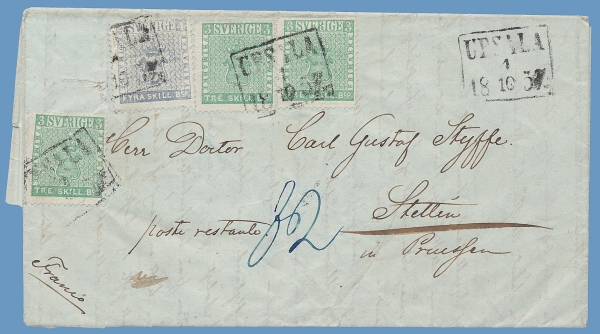 SVERIGE
3 SVERIGE 3
3 SVERIGE 3
FYRA SKILL Bco
TRE SKILL Bco
Bco
UPSALA
1
18 10 57
UPSALA
1
18 10 57
3 SVERIGE 3
TRE SKILL Bco
UPSALA
Herr Doctor Carl Gustaf Styffe.
Stettin
poste restante 82
in Preussen
Franco